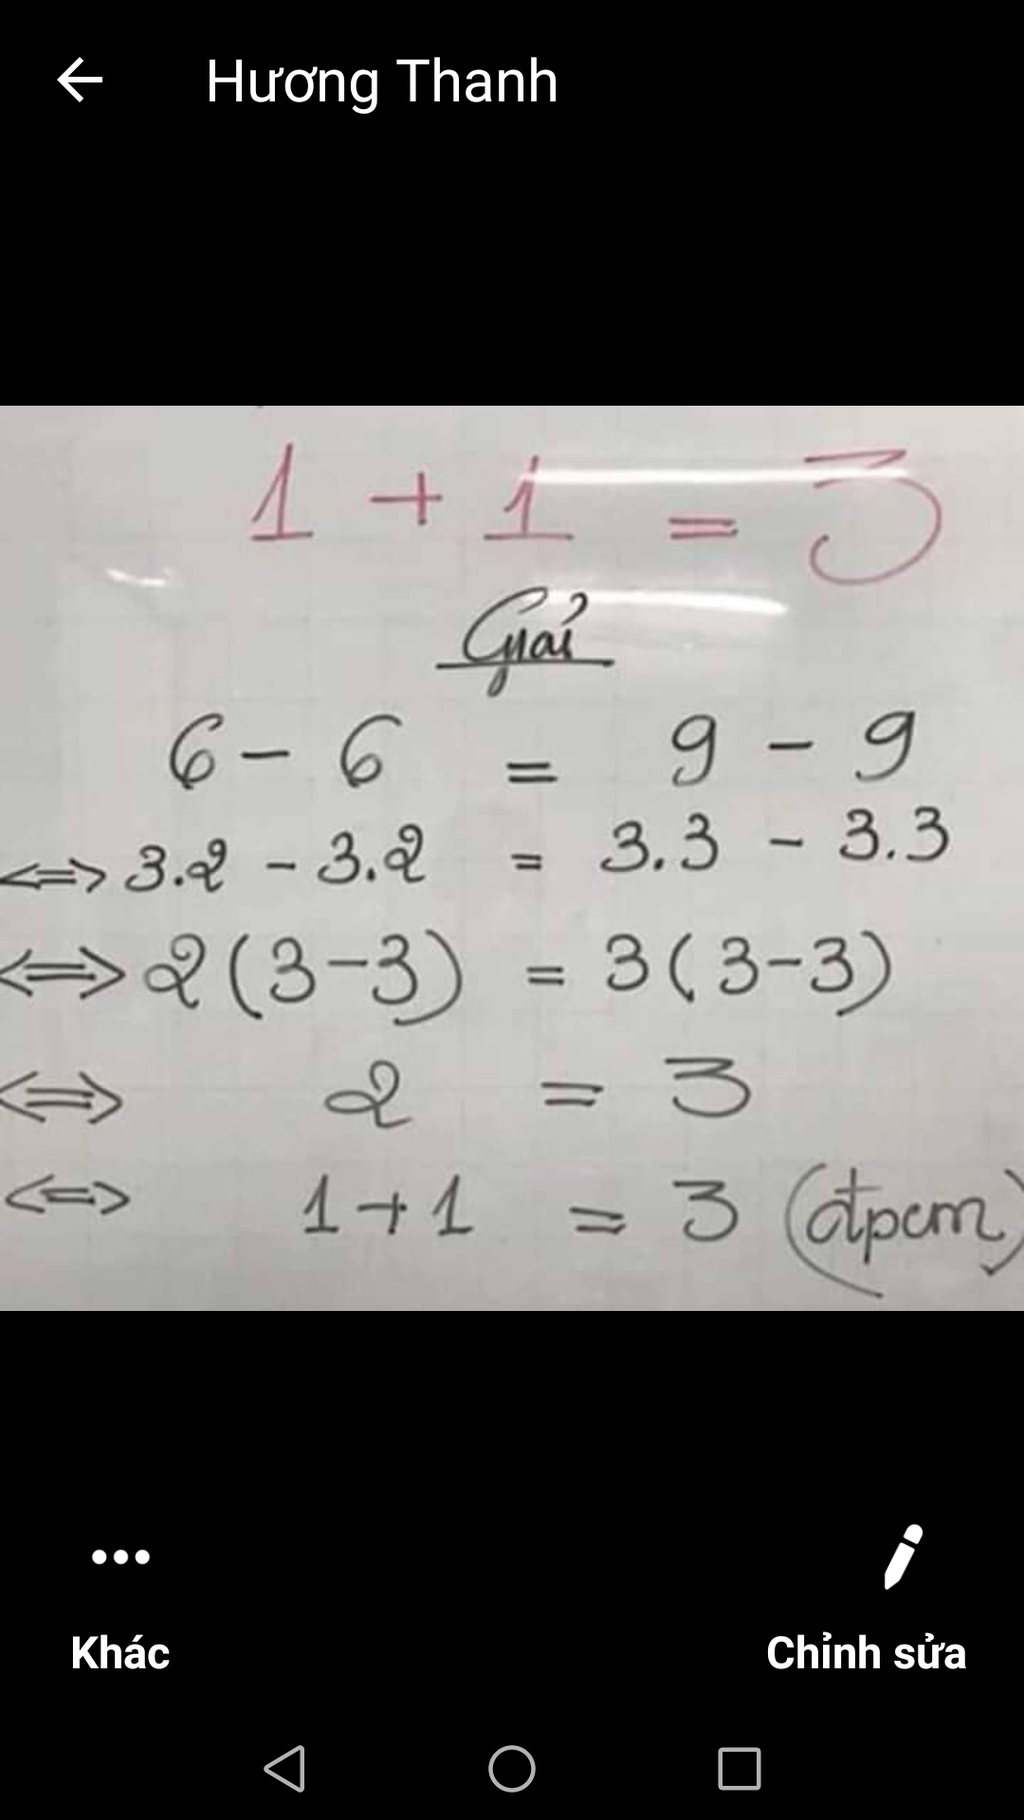 Hương Thanh
1 + 1 = 3
Giải
6 - 6 = 9 - 9
<=> 3.2 - 3.2 = 3.3 - 3.3
<=> 2(3-3) = 3(3-3)
<=> 2 = 3
<=> 1+1 = 3 (đpcm)
Khác
Chỉnh sửa